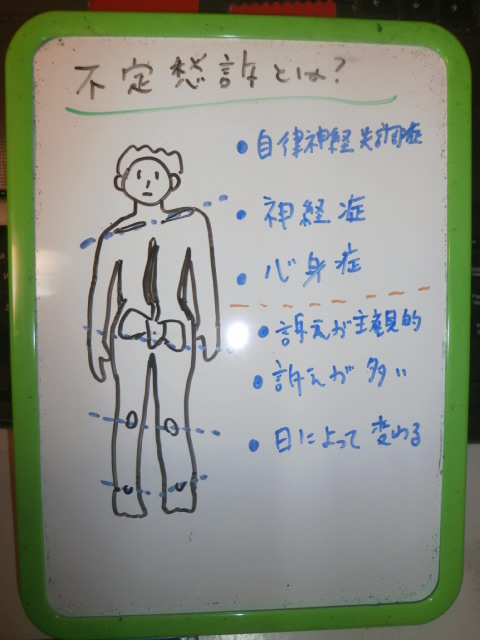 不定愁訴とは?
• 自律神経失調症
• 神経症
• 心身症
• 訴えが主観的
• 訴えが多い
• 日によって変わる